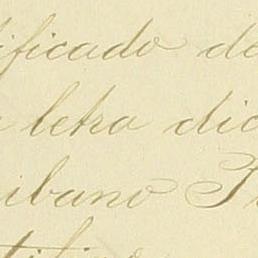 ificado de
letra dic
ibano